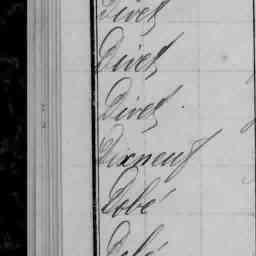 Divet
Divet
Divet
Dixneuf
Dobé